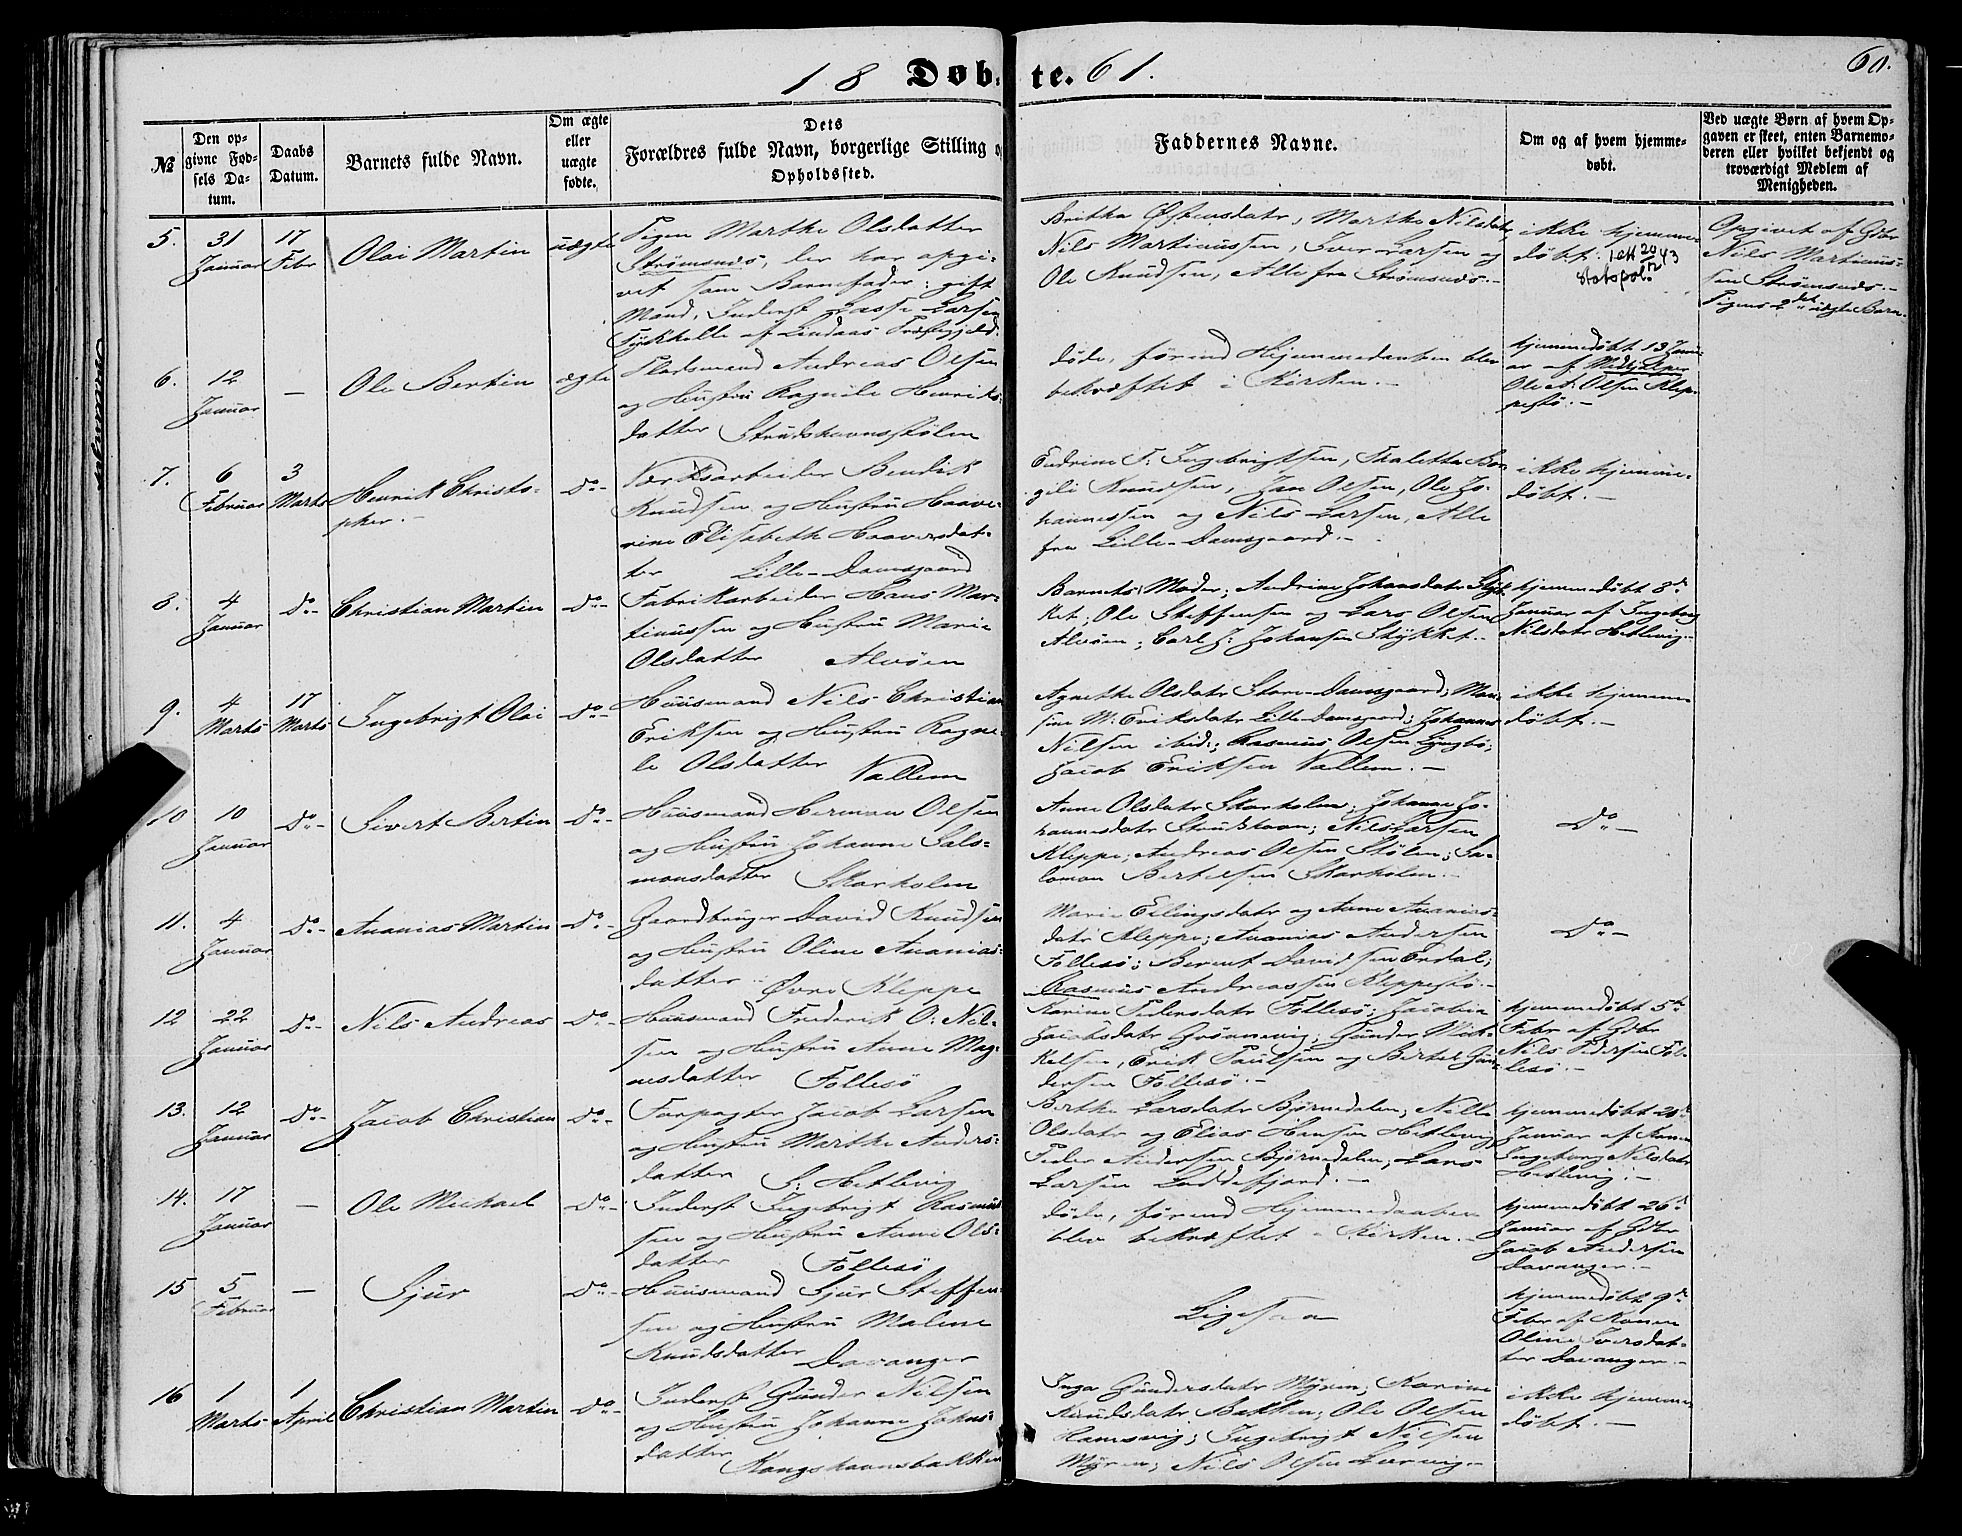 18 Døb- te. 61.
60.
№
Den op-
givne Fød-
sels Da-
tum.
Daabs
Datum.
Barnets fulde Navn.
Om ægte
eller
uægte
fødte.
Dets
Forældres fulde Navn, borgerlige Stilling o
Opholdssted.
Faddernes Navne.
Om og af hvem hjemme-
døbt.
Ved uægte Børn af hvem Op-
gaven er skeet, enten Barnemo-
deren eller hvilket bekjendt og
troværdigt Medlem af
Menigheden.
5. 31 Januar 17 Febr Olai Martin uægte
Pigen Marthe Olsdatter
Strømsnes, der har opgi-
vet som Barnefader: gift
Mand, Inderst Lasse Larsen
af Lindaas Præstegjeld.
Brithe Østensdatr, Marthe Nilsdatr,
Nils Martinussen, Iver Larsen og
Ole Knudsen, Alle fra Strømsnes.-
ikke hjemme-
døbt.
Opgivet af Gdbr
Nils Martinus-
sen Strømsnes.-
Pigens 2det uægte Barn.
6. 12 Januar — Ole Bertin ægte
Pladsmand Andreas Olsen
og Hustru Ragnile Henriks-
datter Strudshavnsstølen
døde, førend Hjemmedaaben blev
bekræftet i Kirken.-
hjemmedøbt 13 Janu-
ar af Medhjelper
Ole A. Olsen Klep-
pestø.-
7. 6 Februar 3 Marts Henrik Christo-
pher.- Do-
Værksarbeider Bendik
Knudsen og Hustru Haave-
rine Elisabeth Haaversdat-
ter Lille-Damsgaard
Knudsen, Jan Olsen, Ole Jo-
hannessen og Nils Larsen, Alle
fra Lille-Damsgaard.-
ikke hjemme-
døbt.-
8. 4 Januar Do- Christian Martin Do-
Fabrikarbeider Hans Mar-
tinussen og Hustru Marie
Olsdatter Alvøen
Barnets Moder; Andrine Johansdatr Styk-
ket; Ole Steffensen og Lars Olsen
Alvøen; Carl J. Johansen Stykket.-
hjemmedøbt 8de
Januar af Ingeborg
Nilsdatr Hetlevig.-
9. 4 Marts 17 Marts Ingebrigt Olai Do-
Huusmand Nils Christian
Eriksen og Hustru Ragne-
le Olsdatter Vallem
Agnethe Olsdatr Store-Damsgaard; Man-
sine M. Eriksdatr Lille-Damsgaard; Johannes
Nilsen ibid.; Rasmus Olsen Lyngbø;
Jacob Eriksen Vallem.-
ikke hjemme-
døbt.-
10 10 Januar Do- Sivert Bertin Do-
Huusmand Herman Olsen
og Hustru Johanne Salo-
monsdatter Skarholm
Anne Olsdatr Skarholm; Johanne Jo-
hannesdatr Strudshavn; Nils Larsen
Kleppe; Andreas Olsen Stølen; Sa-
lomon Bertelsen Skarholm.-
Do-
11. 4 Januar Do- Ananias Martin Do-
Gaardbruger David Knudsen
og Hustru Oline Ananias-
datter Øvre Kleppe
Marie Erlingsdatr og Anne Ananias-
datr Kleppe; Ananias Andersen
Follesø; Berent Davidsen Erdal;
Rasmus Andreassen Kleppestø.-
Do-
12 22 Januar Do- Nils Andreas Do-
Huusmand Frederik O. Nil-
sen og Hustru Anne Mag-
nesdatter Follesø
Karine Pedersdatr Follesø; Jacobia
Jacobsdatr Grønnevig; Gunder Mik-
kelsen, Erik Paulsen og Bertel Gun-
dersen Follesø.-
hjemmedøbt 5te
Febr af Gdbr
Nils Pedersen Fol-
lesø.-
13. 12 Januar Do- Jacob Christian Do-
Forpagter Jacob Larsen
og Hustru Merthe Anders-
datter S. Hetlevig
Berthe Larsdatr Bjørnedalen; Nille
Olsdatr og Elias Hansen Hetlevig;
Peder Andersen Bjørnedalen; Lars
Larsen Loddefjord.-
hjemmedøbt 20de
Januar af Konen
Ingeborg Nilsdatr
Hetlevig.-
14. 17 Januar — Ole Michael Do-
Inderst Ingebrigt Rasmus-
sen og Hustru Anne Ols-
datter Follesø
døde, førend Hjemmedaaben
blev bekræftet i Kirken.-
hjemmedøbt 26de
Januar af Gdbr
Jacob Andersen
Davanger.-
15 5 Februar — Sjur Do-
Huusmand Sjur Steffen-
sen og Hustru Malene
Knudsdatter Davanger
Ligesaa
hjemmedøbt 9de
Febr af Konen
Oline Iversdat-
ter Davanger.-
16 1 Marts 1 April Christian Martin Do-
Inderst Gunder Nilsen
og Hustru Johanne Johns-
datter Kongshavnsbakken
Inga Gundersdatr Myren; Karine
Knudsdatr Bakken; Ole Olsen
Hamsvig; Ingebrigt Nilsen
Myren; Nils Olsen
ikke hjemme-
døbt.-